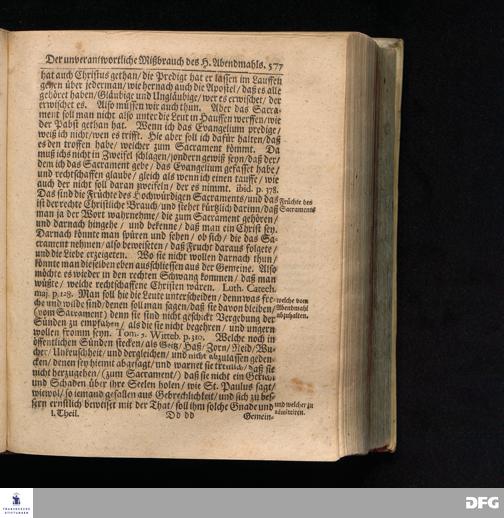 Der unverantwortliche Mißbrauch des H. Abendmahls. 577
hat auch Christus gethan/ die Predigt hat er lassen im Lauffen
gehen über jederman/ wie hernach auch die Apostel/ daß es alle
gehöret haben/ Gläubige und Ungläubige/ wer es erwischet/ der
erwischet es. Also müssen wir auch thun. Aber das Sacra-
ment soll man nicht also unter die Leut in Hauffen werffen/ wie
der Pabst gethan hat. Wenn ich das Evangelium predige/
weiß ich nicht/ wen es trifft. Hie aber soll ich dafür halten/ daß
es den troffen habe/ welcher zum Sacrament kömmt. Da
muß ichs nicht in Zweifel schlagen/ sondern gewiß seyn/ daß der/
dem ich das Sacrament gebe/ das Evangelium gefasset habe/
und rechtschaffen glaube/ gleich als wenn ich einen tauffe/ wie
auch der nicht soll daran zweifeln/ der es nimmt. ibid. p. 378.
Das sind die Früchte des Hochwürdigen Sacraments/ und das
ist der rechte Christliche Brauch/ und stehet kürtzlich darinn/ daß
man ja der Wort wahrnehme/ die zum Sacrament gehören/
und darnach hingehe/ und bekenne/ daß man ein Christ sey.
Darnach könnte man spüren und sehen/ ob sich/ die das Sa-
crament nehmen/ also beweiseten/ daß Frucht daraus folgete/
und die Liebe erzeigeten. Wo sie nicht wollen darnach thun/
könnte man dieselben eben ausschliessen aus der Gemeine. Also
möchte es wieder in den rechten Schwang kommen/ daß man
wüßte/ welche rechtschaffene Christen wären. Luth. Catech.
maj. p. 128. Man soll hie die Leute unterscheiden/ denn was fre-
che und wilde sind/ denen soll man sagen/ daß sie davon bleiben/
(vom Sacrament) denn sie sind nicht geschickt Vergebung der
Sünden zu empfahen/ als die sie nicht begehren/ und ungern
wollen fromm seyn. Tom. 5. Witteb. p. 310. Welche noch in
öffentlichen Sünden stecken/ als Geitz/ Haß/ Zorn/ Neid/ Wu-
cher/ Unkeuschheit/ und dergleichen/ und nicht abzulassen geden-
cken/ denen sey hiemit abgesagt/ und warnet sie treulich/ daß sie
nicht herzugehen/ (zum Sacrament/) daß sie nicht ein Gericht
und Schaden über ihre Seelen holen/ wie St. Paulus sagt/
wiewol/ so iemand gefallen aus Gebrechlichkeit/ und sich zu bes-
sern ernstlich beweiset mit der That/ soll ihm solche Gnade und
I. Theil. Dd dd Gemein-
Früchte des
Sacraments
welche vom
Abendmahl
abzuhalten.
und welcher zu
DFG